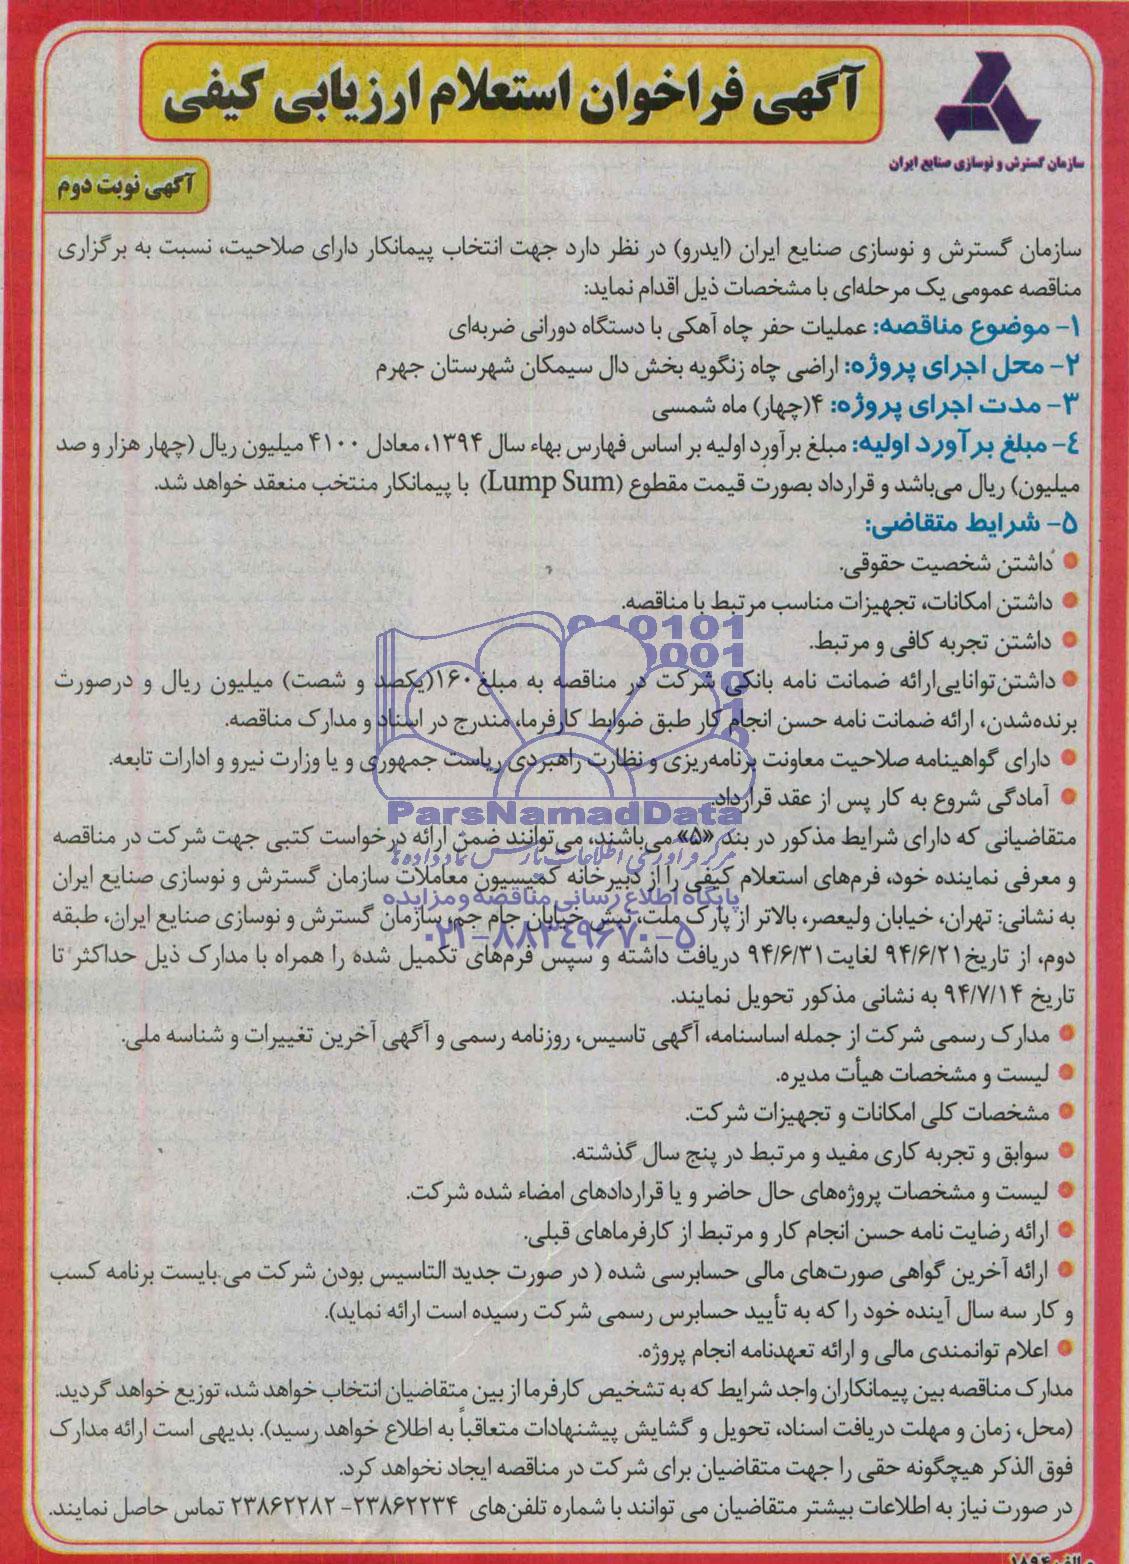 آگهی فراخوان استعلام ارزیابی کیفی
سازمان گسترش و نوسازی صنایع ایران
آگهی نوبت دوم
سازمان گسترش و نوسازی صنایع ایران (ایدرو) در نظر دارد جهت انتخاب پیمانکار دارای صلاحیت، نسبت به برگزاری
مناقصه عمومی یک مرحله‌ای با مشخصات ذیل اقدام نماید:
۱- موضوع مناقصه: عملیات حفر چاه آهکی با دستگاه دورانی ضربه‌ای
۲- محل اجرای پروژه: اراضی چاه زنگویه بخش دال سیمکان شهرستان جهرم
۳- مدت اجرای پروژه: ۴(چهار) ماه شمسی
۴- مبلغ برآورد اولیه: مبلغ برآورد اولیه بر اساس فهارس بهاء سال ۱۳۹۴، معادل ۴۱۰۰ میلیون ریال (چهار هزار و صد
میلیون) ریال می‌باشد و قرارداد بصورت قیمت مقطوع (Lump Sum) با پیمانکار منتخب منعقد خواهد شد.
۵- شرایط متقاضی:
● داشتن شخصیت حقوقی.
● داشتن امکانات، تجهیزات مناسب مرتبط با مناقصه.
● داشتن تجربه کافی و مرتبط.
● داشتن توانایی ارائه ضمانت نامه بانکی شرکت در مناقصه به مبلغ ۱۶۰(یکصد و شصت) میلیون ریال و درصورت
برنده‌شدن، ارائه ضمانت نامه حسن انجام کار طبق ضوابط کارفرما، مندرج در اسناد و مدارک مناقصه.
● دارای گواهینامه صلاحیت معاونت برنامه‌ریزی و نظارت راهبردی ریاست جمهوری و یا وزارت نیرو و ادارات تابعه.
● آمادگی شروع به کار پس از عقد قرارداد.
ParsNamadData
متقاضیانی که دارای شرایط مذکور در بند «۵» می‌باشند، می‌توانند ضمن ارائه درخواست کتبی جهت شرکت در مناقصه
مرکز فرآوری اطلاعات پارس نماد داده‌ها
و معرفی نماینده خود، فرم‌های استعلام کیفی را از دبیرخانه کمیسیون معاملات سازمان گسترش و نوسازی صنایع ایران
پایگاه اطلاع رسانی مناقصه و مزایده
به نشانی: تهران، خیابان ولیعصر، بالاتر از پارک ملت، نبش خیابان جام جم، سازمان گسترش و نوسازی صنایع ایران، طبقه
۰۲۱-۸۸۳۴۹۶۷۰-۵
دوم، از تاریخ ۹۴/۶/۲۱ لغایت ۹۴/۶/۳۱ دریافت داشته و سپس فرم‌های تکمیل شده را همراه با مدارک ذیل حداکثر تا
تاریخ ۹۴/۷/۱۴ به نشانی مذکور تحویل نمایند.
● مدارک رسمی شرکت از جمله اساسنامه، آگهی تاسیس، روزنامه رسمی و آگهی آخرین تغییرات و شناسه ملی.
● لیست و مشخصات هیأت مدیره.
● مشخصات کلی امکانات و تجهیزات شرکت.
● سوابق و تجربه کاری مفید و مرتبط در پنج سال گذشته.
● لیست و مشخصات پروژه‌های حال حاضر و یا قراردادهای امضاء شده شرکت.
● ارائه رضایت نامه حسن انجام کار و مرتبط از کارفرماهای قبلی.
● ارائه آخرین گواهی صورت‌های مالی حسابرسی شده ( در صورت جدید التاسیس بودن شرکت می بایست برنامه کسب
و کار سه سال آینده خود را که به تأیید حسابرس رسمی شرکت رسیده است ارائه نماید).
● اعلام توانمندی مالی و ارائه تعهدنامه انجام پروژه.
مدارک مناقصه بین پیمانکاران واجد شرایط که به تشخیص کارفرما از بین متقاضیان انتخاب خواهد شد، توزیع خواهد گردید.
(محل، زمان و مهلت دریافت اسناد، تحویل و گشایش پیشنهادات متعاقباً به اطلاع خواهد رسید). بدیهی است ارائه مدارک
فوق الذکر هیچگونه حقی را جهت متقاضیان برای شرکت در مناقصه ایجاد نخواهد کرد.
در صورت نیاز به اطلاعات بیشتر متقاضیان می توانند با شماره تلفن‌های ۲۳۸۶۲۲۳۴- ۲۳۸۶۲۲۸۲ تماس حاصل نمایند.